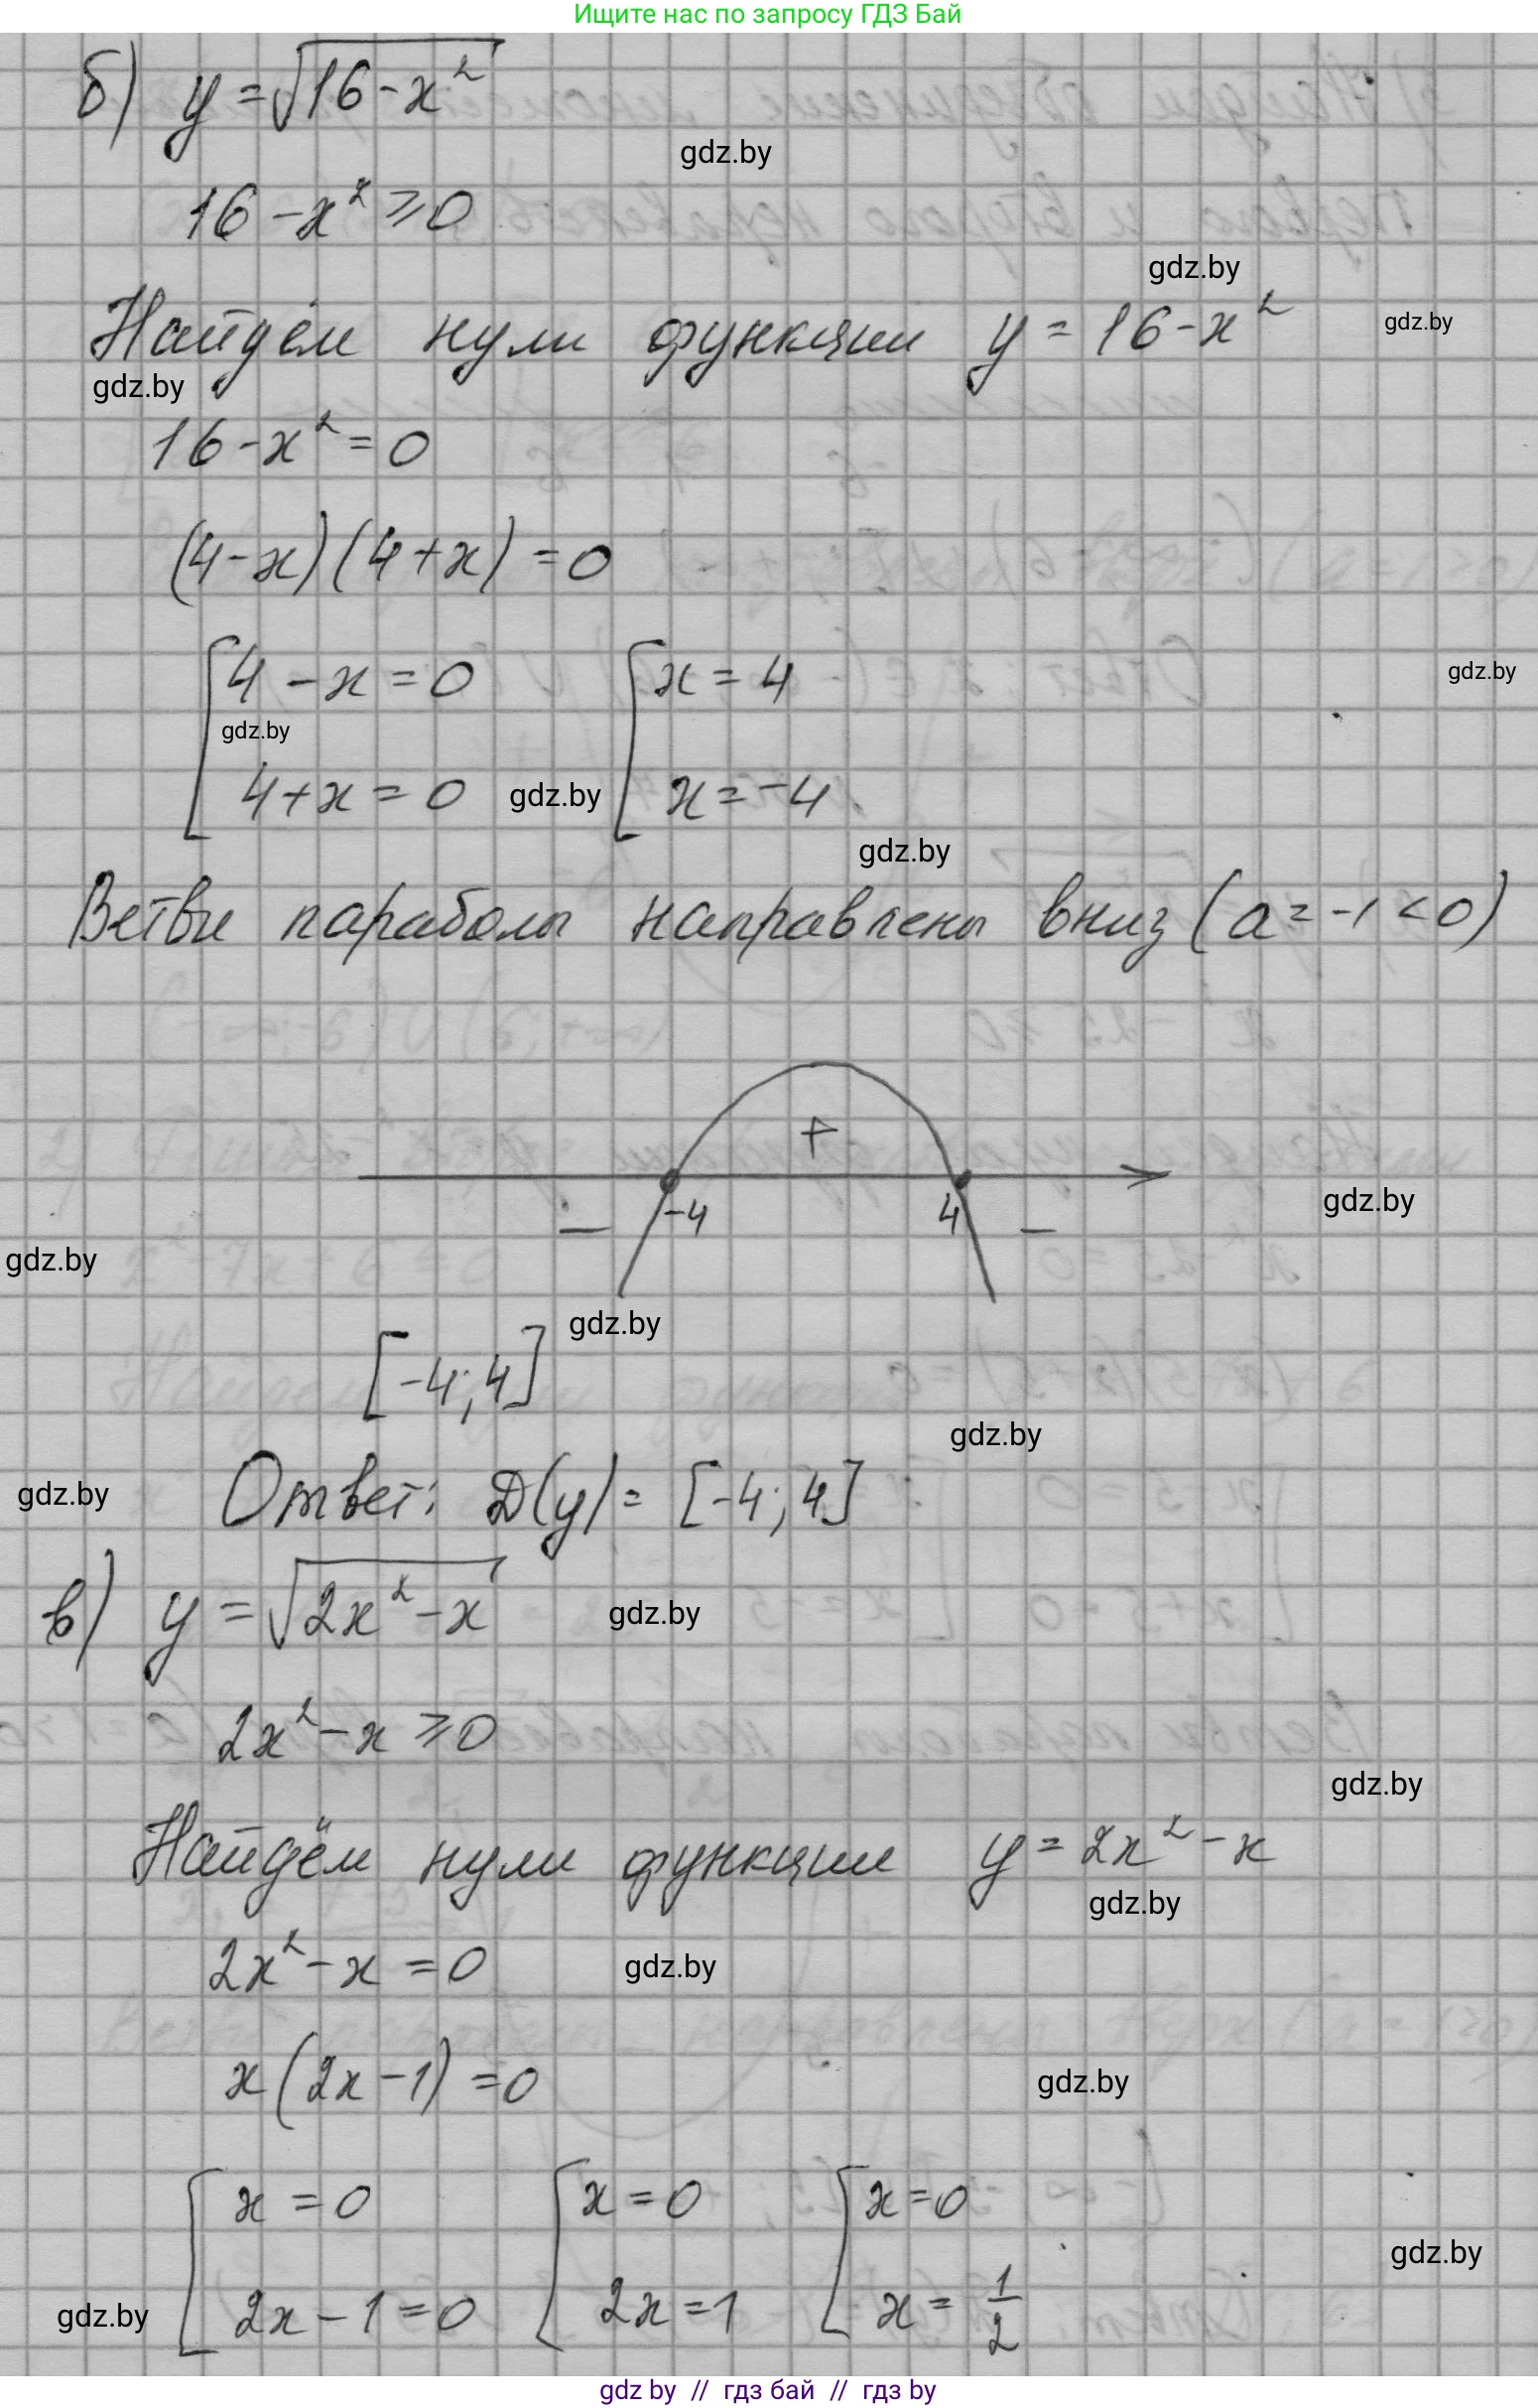 Ищите нас по запросу ГДЗ Бай
б) y = √(16 - x²)
gdz.by
16 - x² ⩾ 0
gdz.by
Найдём нули функции y = 16 - x²
gdz.by
gdz.by
16 - x² = 0
(4 - x)(4 + x) = 0
[ 4 - x = 0 [ x = 4
gdz.by
gdz.by
4 + x = 0 gdz.by x = -4
gdz.by
Ветви параболы направлены вниз (a = -1 < 0)
+
-4 4
gdz.by
− −
gdz.by
gdz.by
[-4; 4]
gdz.by
gdz.by
Ответ: D(y) = [-4; 4]
в) y = √(2x² - x)
gdz.by
2x² - x ⩾ 0
gdz.by
Найдём нули функции y = 2x² - x
gdz.by
2x² - x = 0
gdz.by
x(2x - 1) = 0
gdz.by
[ x = 0 [ x = 0 [ x = 0
gdz.by
2x - 1 = 0 2x = 1 x = 1/2
gdz.by
gdz by // гдз бай // гдз by